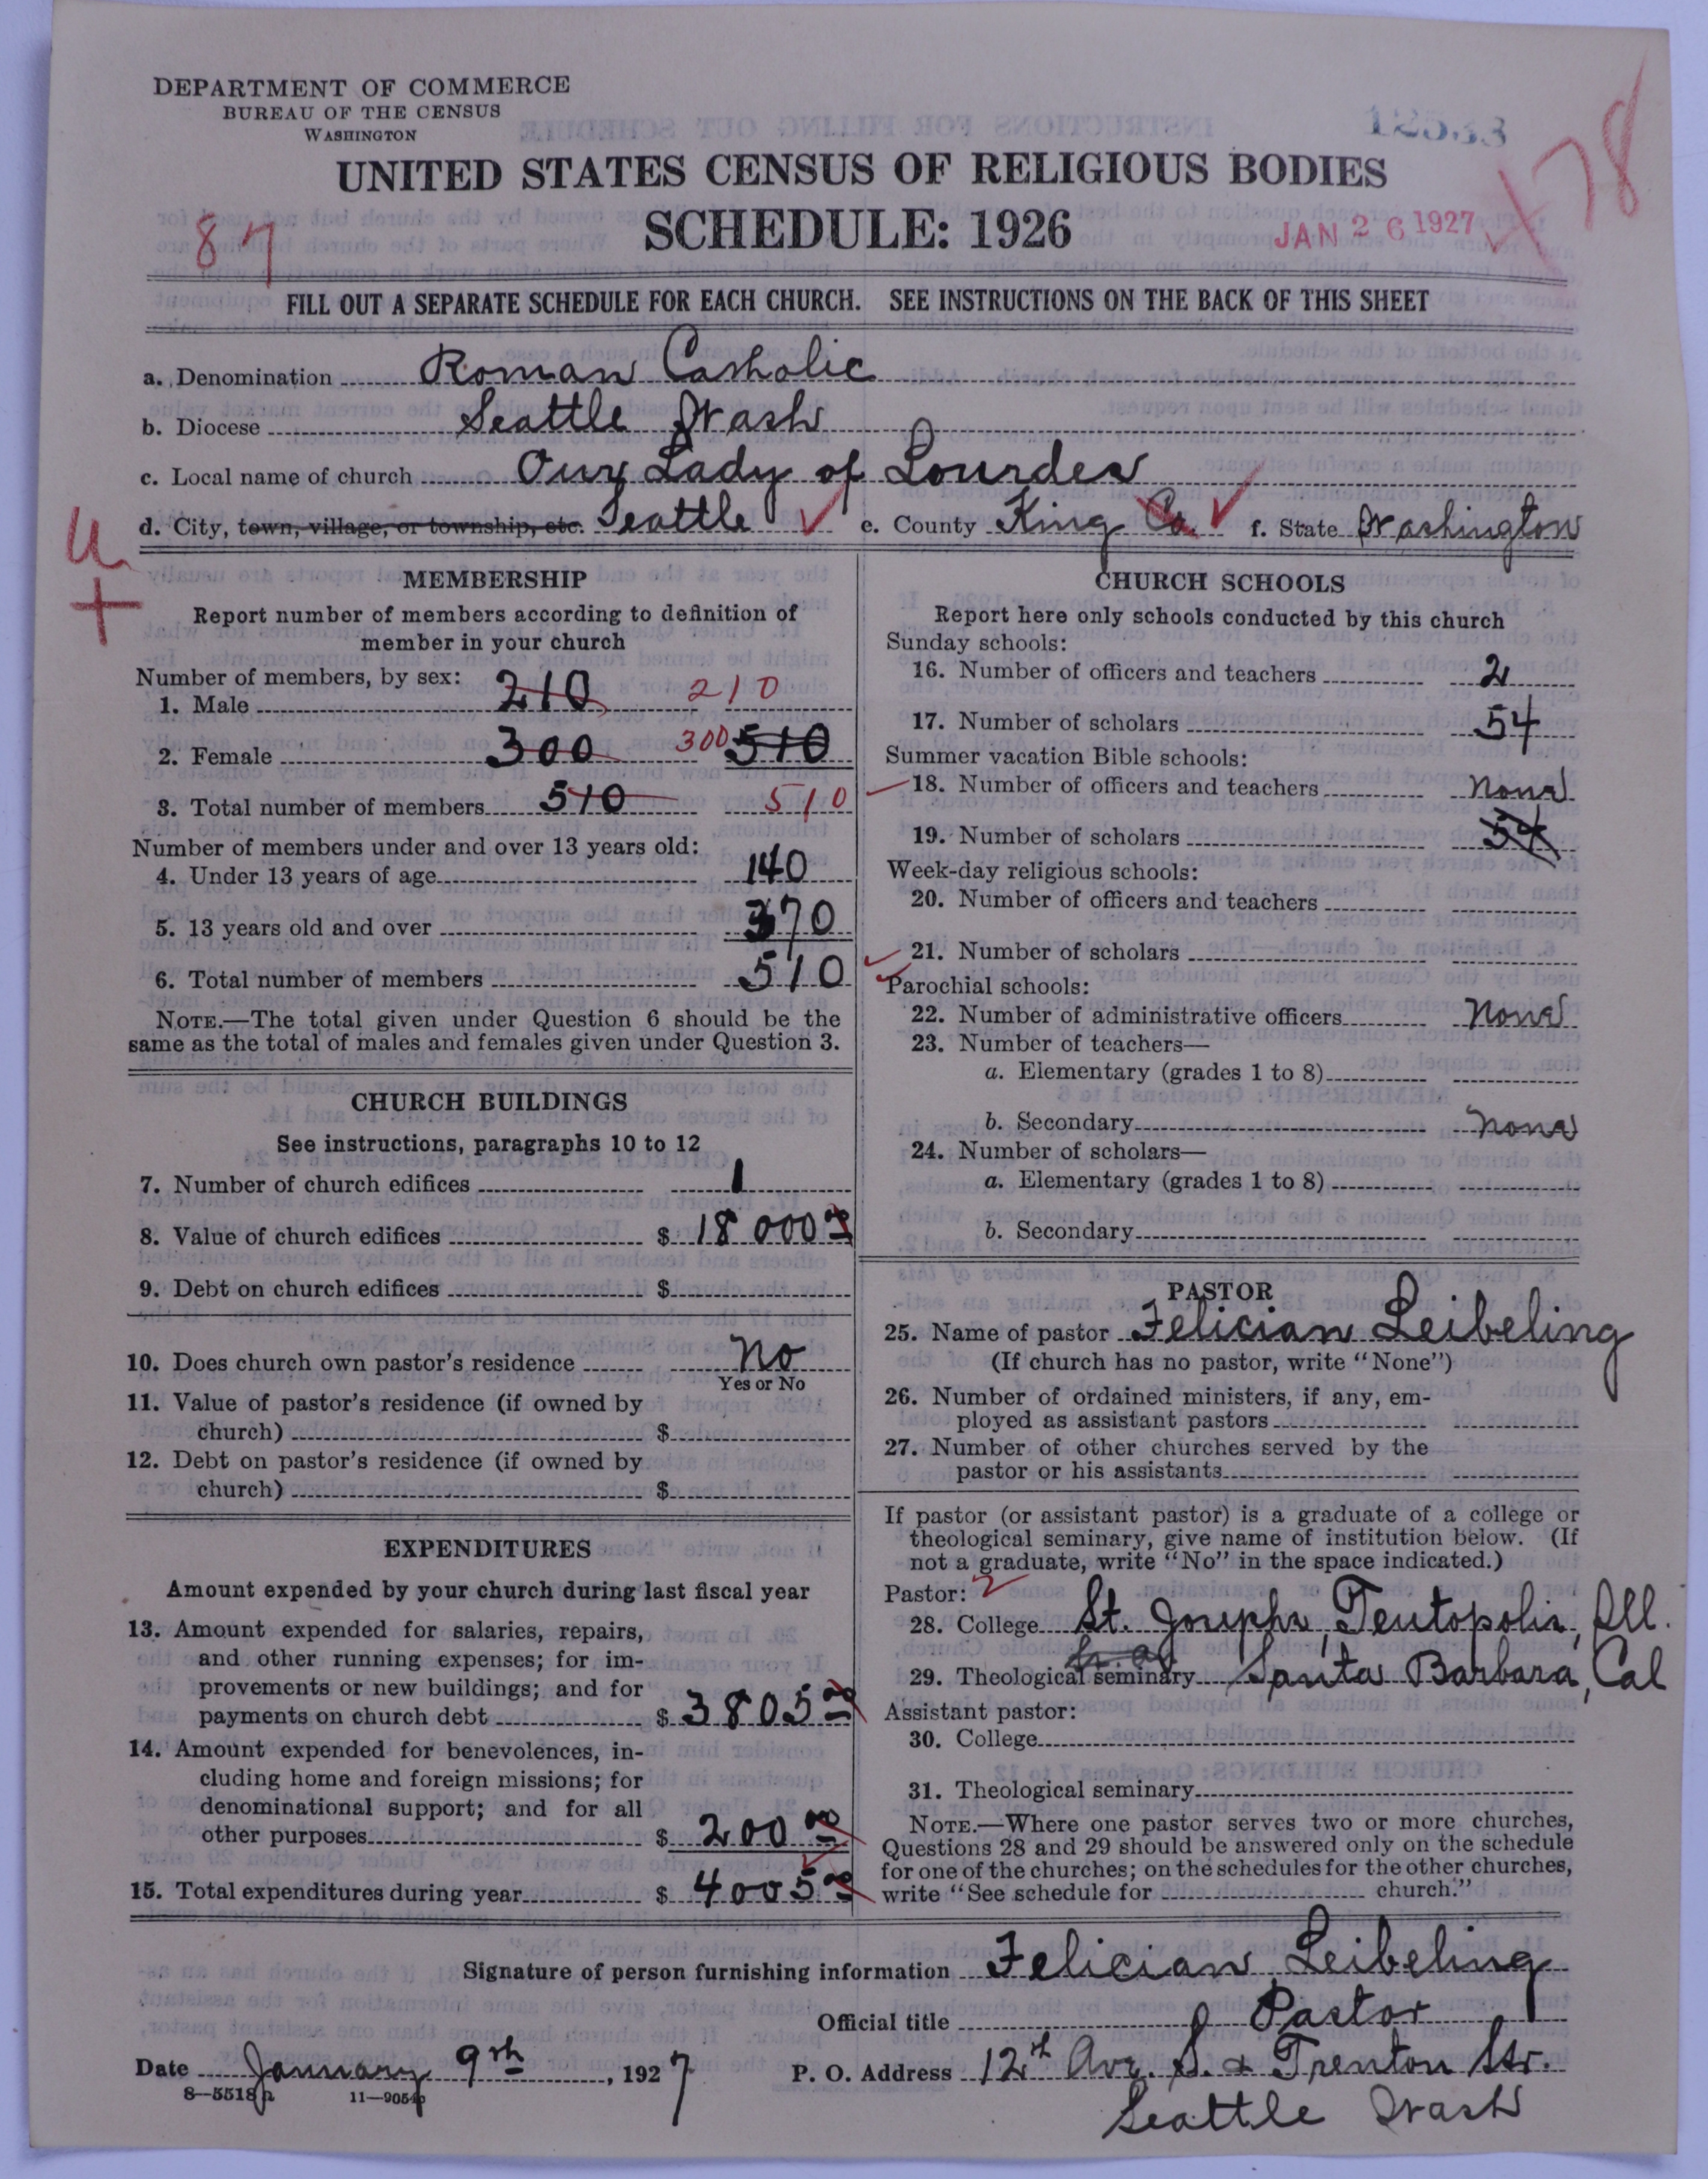 DEPARTMENT OF COMMERCE
BUREAU OF THE CENSUS
WASHINGTON
UNITED STATES CENSUS OF RELIGIOUS BODIES
SCHEDULE: 1926
JAN 26 1927
78
87
FILL OUT A SEPARATE SCHEDULE FOR EACH CHURCH. SEE INSTRUCTIONS ON THE BACK OF THIS SHEET
a. Denomination Roman Catholic
b. Diocese Seattle Wash
c. Local name of church Our Lady of Lourdes
d. City, town, village, or township, etc. Seattle e. County King Co. f. State Washington
U
+
MEMBERSHIP
Report number of members according to definition of
member in your church
Number of members, by sex:
1. Male 210 210
2. Female 300 300 510
3. Total number of members 510 510
Number of members under and over 13 years old:
4. Under 13 years of age 140
5. 13 years old and over 370
6. Total number of members 510
NOTE.—The total given under Question 6 should be the
same as the total of males and females given under Question 3.
CHURCH BUILDINGS
See instructions, paragraphs 10 to 12
7. Number of church edifices 1
8. Value of church edifices $ 18 000 00
9. Debt on church edifices $
10. Does church own pastor's residence No
Yes or No
11. Value of pastor's residence (if owned by
church) $
12. Debt on pastor's residence (if owned by
church) $
EXPENDITURES
Amount expended by your church during last fiscal year
13. Amount expended for salaries, repairs,
and other running expenses; for im-
provements or new buildings; and for
payments on church debt $ 3805 00
14. Amount expended for benevolences, in-
cluding home and foreign missions; for
denominational support; and for all
other purposes $ 200 00
15. Total expenditures during year $ 4005 00
CHURCH SCHOOLS
Report here only schools conducted by this church
Sunday schools:
16. Number of officers and teachers 2
17. Number of scholars 54
Summer vacation Bible schools:
18. Number of officers and teachers none
19. Number of scholars 54
Week-day religious schools:
20. Number of officers and teachers
21. Number of scholars
Parochial schools:
22. Number of administrative officers none
23. Number of teachers—
a. Elementary (grades 1 to 8)
b. Secondary none
24. Number of scholars—
a. Elementary (grades 1 to 8)
b. Secondary
PASTOR
25. Name of pastor Felician Leibeling
(If church has no pastor, write "None")
26. Number of ordained ministers, if any, em-
ployed as assistant pastors
27. Number of other churches served by the
pastor or his assistants
If pastor (or assistant pastor) is a graduate of a college or
theological seminary, give name of institution below. (If
not a graduate, write "No" in the space indicated.)
Pastor: 2
28. College St. Josephs, Teutopolis, Ill.
29. Theological seminary Santa Barbara, Cal
Assistant pastor:
30. College
31. Theological seminary
NOTE.—Where one pastor serves two or more churches,
Questions 28 and 29 should be answered only on the schedule
for one of the churches; on the schedules for the other churches,
write "See schedule for church."
Signature of person furnishing information Felician Leibeling
Official title Pastor
Date January 9th, 1927 P. O. Address 12th Ave. S. & Trenton Str.
8—5518a 11—9054b Seattle Wash